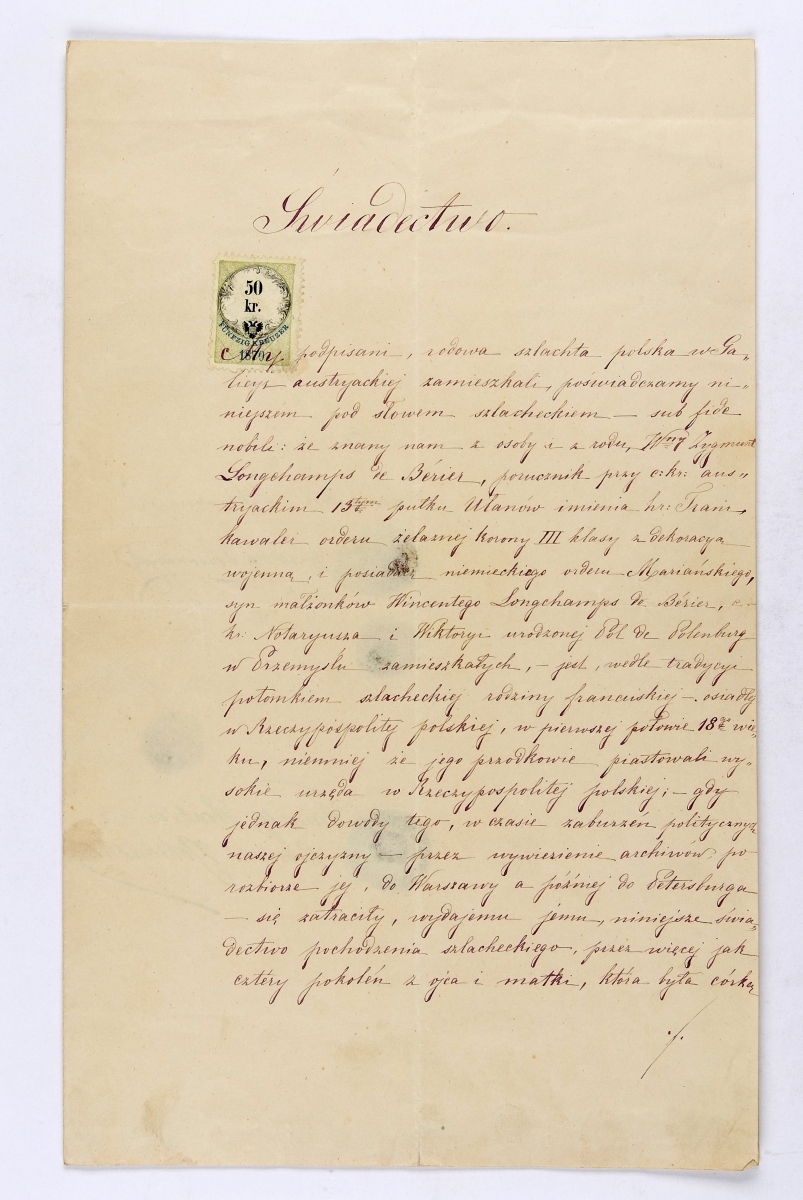 Świadectwo.
50
kr.
FÜNFZIG KREUZER
1879
My podpisani, rodowa szlachta polska w Ga„
licyi austryackiej zamieszkali, poświadczamy ni„
niejszém pod słowem szlacheckiem — sub fide
nobili: że znany nam z osoby i z rodu, Wny Zygmunt
Longchamps de Bérier, porucznik przy c: kr: aus„
tryackim 13tym pułku Ułanów imienia hr: Trani,
kawaler orderu żelaznej korony III klasy z dekoracya
wojenną, i posiadacz niemieckiego orderu Maryańskiego,
syn małżonków Wincentego Longchamps de Bérier, c.
kr: Notaryusza i Wiktoryi urodzonej Pol de Polenburg
w Przemyślu zamieszkałych, — jest, wedle tradycyi
potomkiem szlacheckiej rodziny francuskiej — osiadłej
w Rzeczypospolitej polskiej, w pierwszej połowie 18go wie„
ku, niemniej że jego przodkowie piastowali wy„
sokie urzęda w Rzeczypospolitej polskiej; — gdy
jednak dowody tego, w czasie zaburzeń politycznych
naszej ojczyzny — przez wywiezienie archiwów, po
rozbiorze jej, do Warszawy a później do Petersburga
— się zatraciły, wydajemy jemu, niniejsze świa„
dectwo pochodzenia szlacheckiego, przez więcej jak
cztéry pokoleń z ojca i matki, która była córką
./.